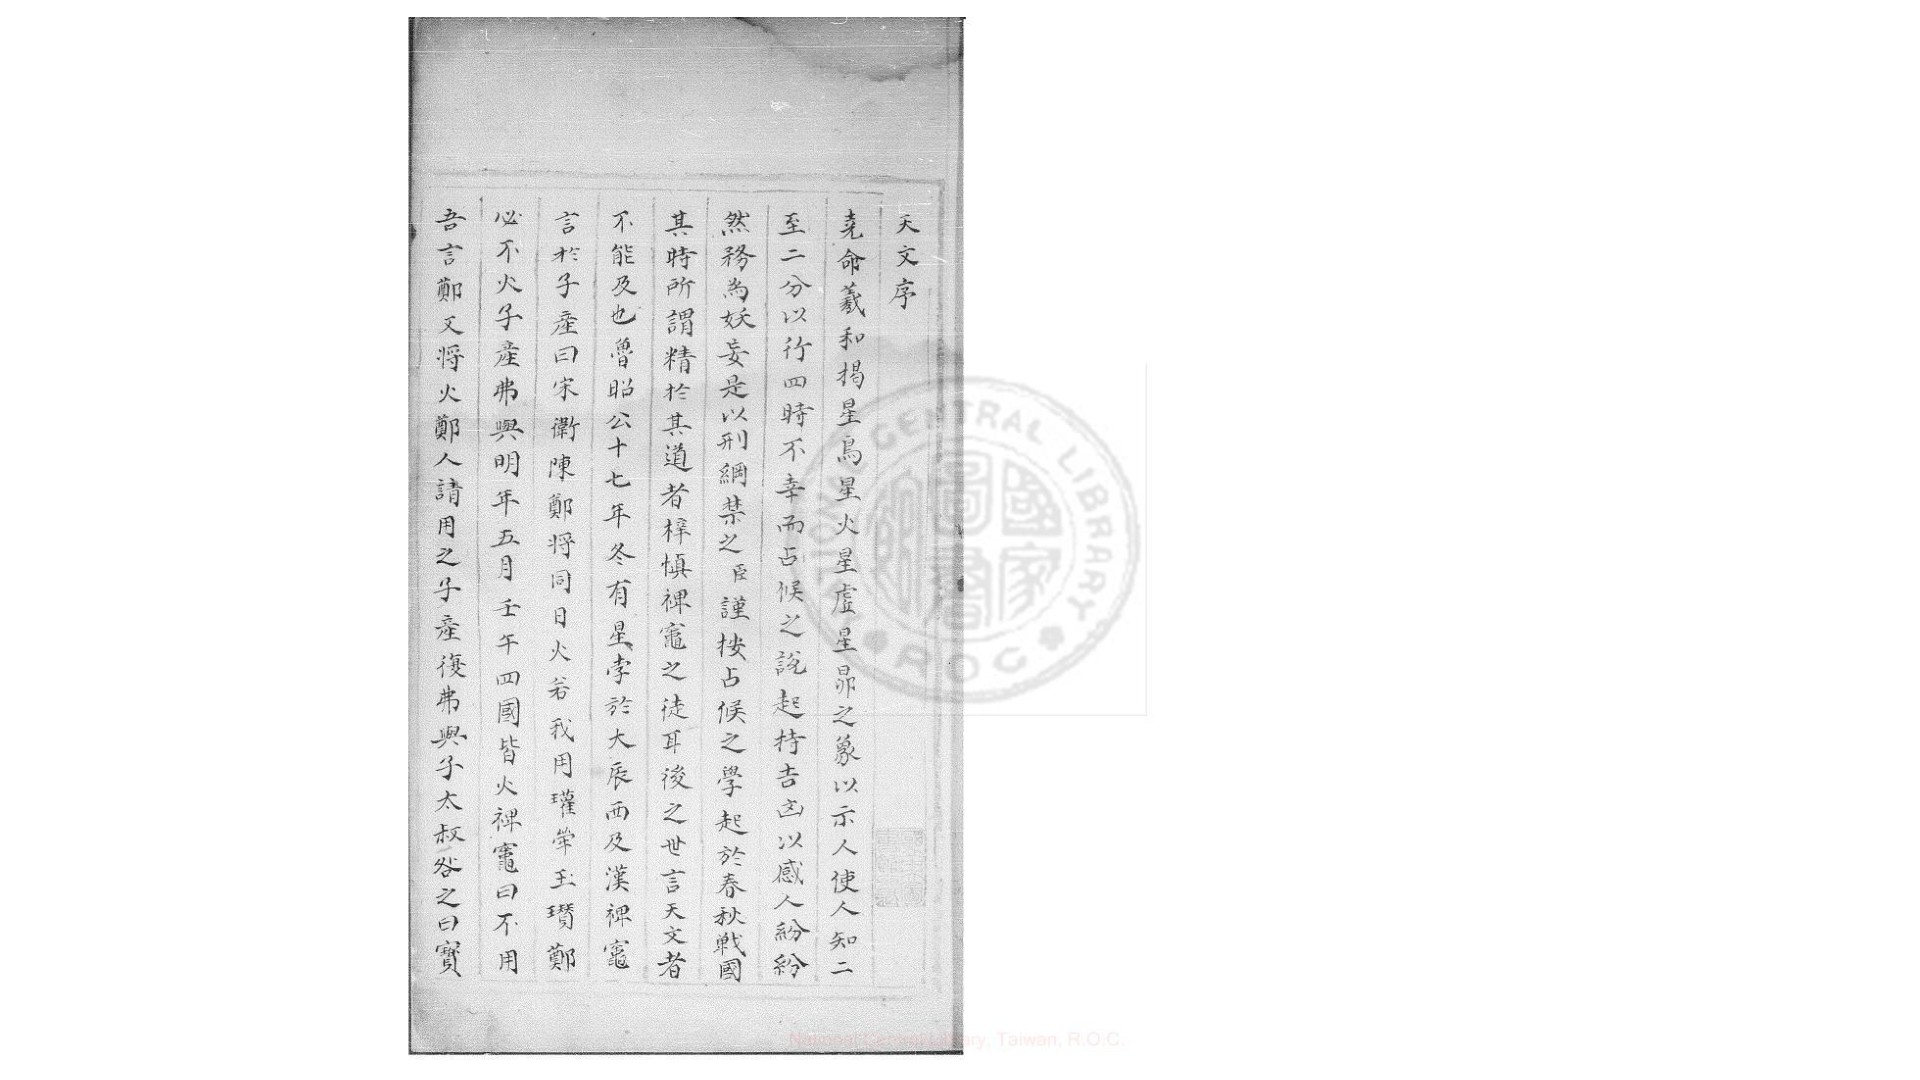 天文序
堯命羲和揭星鳥星火星虛星昴之象以示人使人知二
至二分以行四時不幸而占候之說起持吉凶以惑人紛紛
然務為妖妄是以刑綱禁之臣謹按占候之學起於春秋戰國
其時所謂精於其道者梓慎裨竈之徒耳後之世言天文者
不能及也魯昭公十七年冬有星孛於大辰西及漢裨竈
言於子產曰宋衛陳鄭將同日火若我用瓘斝玉瓚鄭
必不火子產弗與明年五月壬午四國皆火裨竈曰不用
吾言鄭又將火鄭人請用之子產復弗與子太叔咎之曰寳
NATIONAL CENTRAL LIBRARY
R O C
國家圖書館
National Central Library, Taiwan, R.O.C.